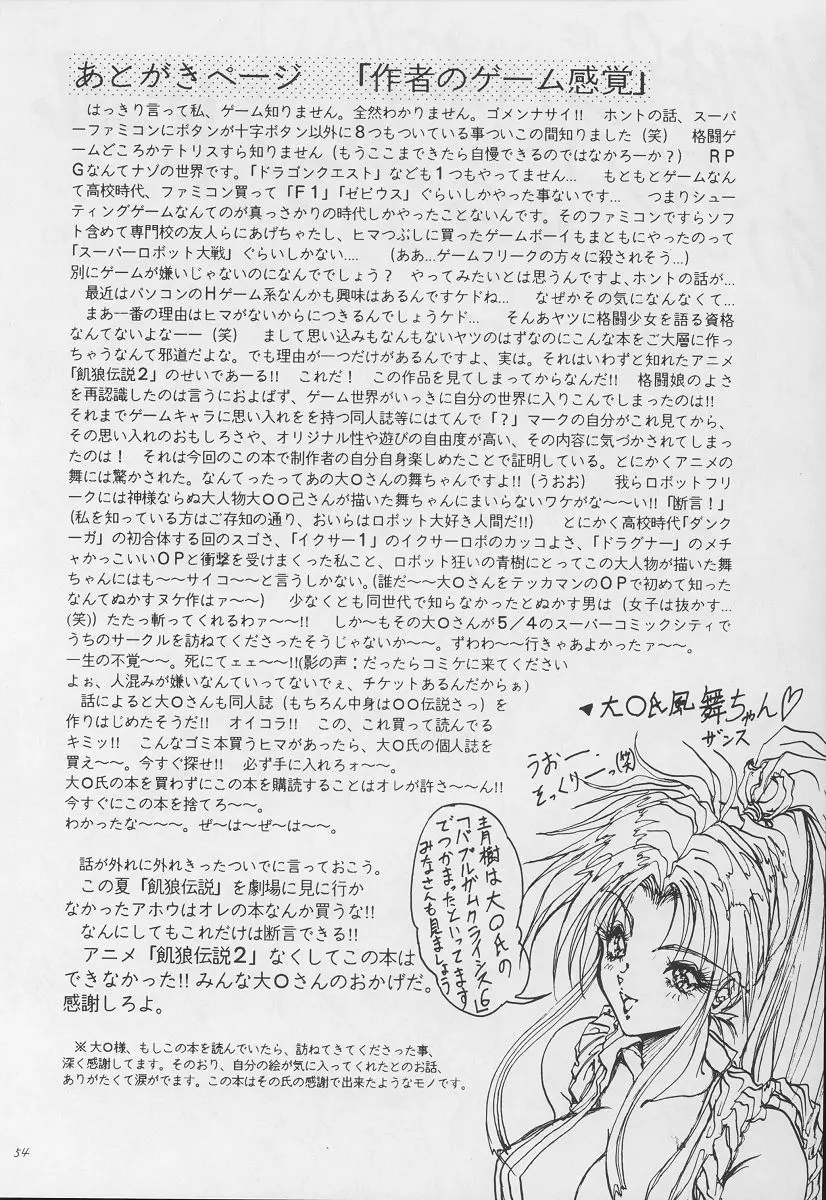 あとがきページ 「作者のゲーム感覚」
はっきり言って私、ゲーム知りません。全然わかりません。ゴメンナサイ!! ホントの話、スーパ
ーファミコンにボタンが十字ボタン以外に8つもついている事ついこの間知りました(笑) 格闘ゲ
ームどころかテトリスすら知りません(もうここまできたら自慢できるのではなかろーか?) RP
Gなんてナゾの世界です。「ドラゴンクエスト」なども1つもやってません… もともとゲームなん
て高校時代、ファミコン買って「F1」「ゼビウス」ぐらいしかやった事ないです… つまりシュー
ティングゲームなんてのが真っさかりの時代しかやったことないんです。そのファミコンですらソフ
ト含めて専門校の友人らにあげちゃたし、ヒマつぶしに買ったゲームボーイもまともにやったのって
「スーパーロボット大戦」ぐらいしかない…. (ああ…ゲームフリークの方々に殺されそう…)
別にゲームが嫌いじゃないのになんででしょう? やってみたいとは思うんですよ、ホントの話が…
最近はパソコンのHゲーム系なんかも興味はあるんですケドね… なぜかその気になんなくて…
まあ一番の理由はヒマがないからにつきるんでしょうケド… そんあヤツに格闘少女を語る資格
なんてないよなーー(笑) まして思い込みもなんもないヤツのはずなのにこんな本をご大層に作っ
ちゃうなんて邪道だよな。でも理由が一つだけがあるんですよ、実は。それはいわずと知れたアニメ
「飢狼伝説2」のせいであーる!! これだ! この作品を見てしまってからなんだ!! 格闘娘のよさ
を再認識したのは言うにおよばず、ゲーム世界がいっきに自分の世界に入りこんでしまったのは!!
それまでゲームキャラに思い入れをを持つ同人誌等にはてんで「?」マークの自分がこれ見てから、
その思い入れのおもしろさや、オリジナル性や遊びの自由度が高い、その内容に気づかされてしまっ
たのは! それは今回のこの本で制作者の自分自身楽しめたことで証明している。とにかくアニメの
舞には驚かされた。なんてったってあの大○さんの舞ちゃんですよ!!(うおお) 我らロボットフリ
ークには神様ならぬ大人物大○○己さんが描いた舞ちゃんにまいらないワケがな〜〜い!!「断言!」
(私を知っている方はご存知の通り、おいらはロボット大好き人間だ!!) とにかく高校時代「ダンク
ーガ」の初合体する回のスゴさ、「イクサー1」のイクサーロボのカッコよさ、「ドラグナー」のメチ
ャかっこいいOPと衝撃を受けまくった私こと、ロボット狂いの青樹にとってこの大人物が描いた舞
ちゃんにはも〜〜サイコ〜〜と言うしかない。(誰だ〜〜大○さんをテッカマンのOPで初めて知った
なんてぬかすヌケ作はァ〜〜) 少なくとも同世代で知らなかったとぬかす男は(女子は抜かす…
(笑))たたっ斬ってくれるわァ〜〜!! しか〜もその大○さんが5/4のスーパーコミックシティで
うちのサークルを訪ねてくださったそうじゃないか〜〜。ずわわ〜〜行きゃあよかったァ〜〜。
一生の不覚〜〜。死にてェェ〜〜!!(影の声:だったらコミケに来てください
よぉ、人混みが嫌いなんていってないでぇ、チケットあるんだからぁ)
話によると大○さんも同人誌(もちろん中身は○○伝説さっ)を
作りはじめたそうだ!! オイコラ!! この、これ買って読んでる
キミッ!! こんなゴミ本買うヒマがあったら、大○氏の個人誌を
買え〜〜。今すぐ探せ!! 必ず手に入れろォ〜〜。
大○氏の本を買わずにこの本を購読することはオレが許さ〜〜ん!!
今すぐにこの本を捨てろ〜〜。
わかったな〜〜〜。ぜ〜は〜ぜ〜は〜〜。
話が外れに外れきったついでに言っておこう。
この夏「飢狼伝説」を劇場に見に行か
なかったアホウはオレの本なんか買うな!!
なんにしてもこれだけは断言できる!!
アニメ「飢狼伝説2」なくしてこの本は
できなかった!! みんな大○さんのおかげだ。
感謝しろよ。
※大○様、もしこの本を読んでいたら、訪ねてきてくださった事、
深く感謝してます。そのおり、自分の絵が気に入ってくれたとのお話、
ありがたくて涙がでます。この本はその氏の感謝で出来たようなモノです。
▼大○氏風舞ちゃん♡
ザンス
うおー
そっくりーっ(笑)
青樹は大○氏の
「バブルガムクライシス6」
でつかまったといってます
みなさんも見ましょう
54